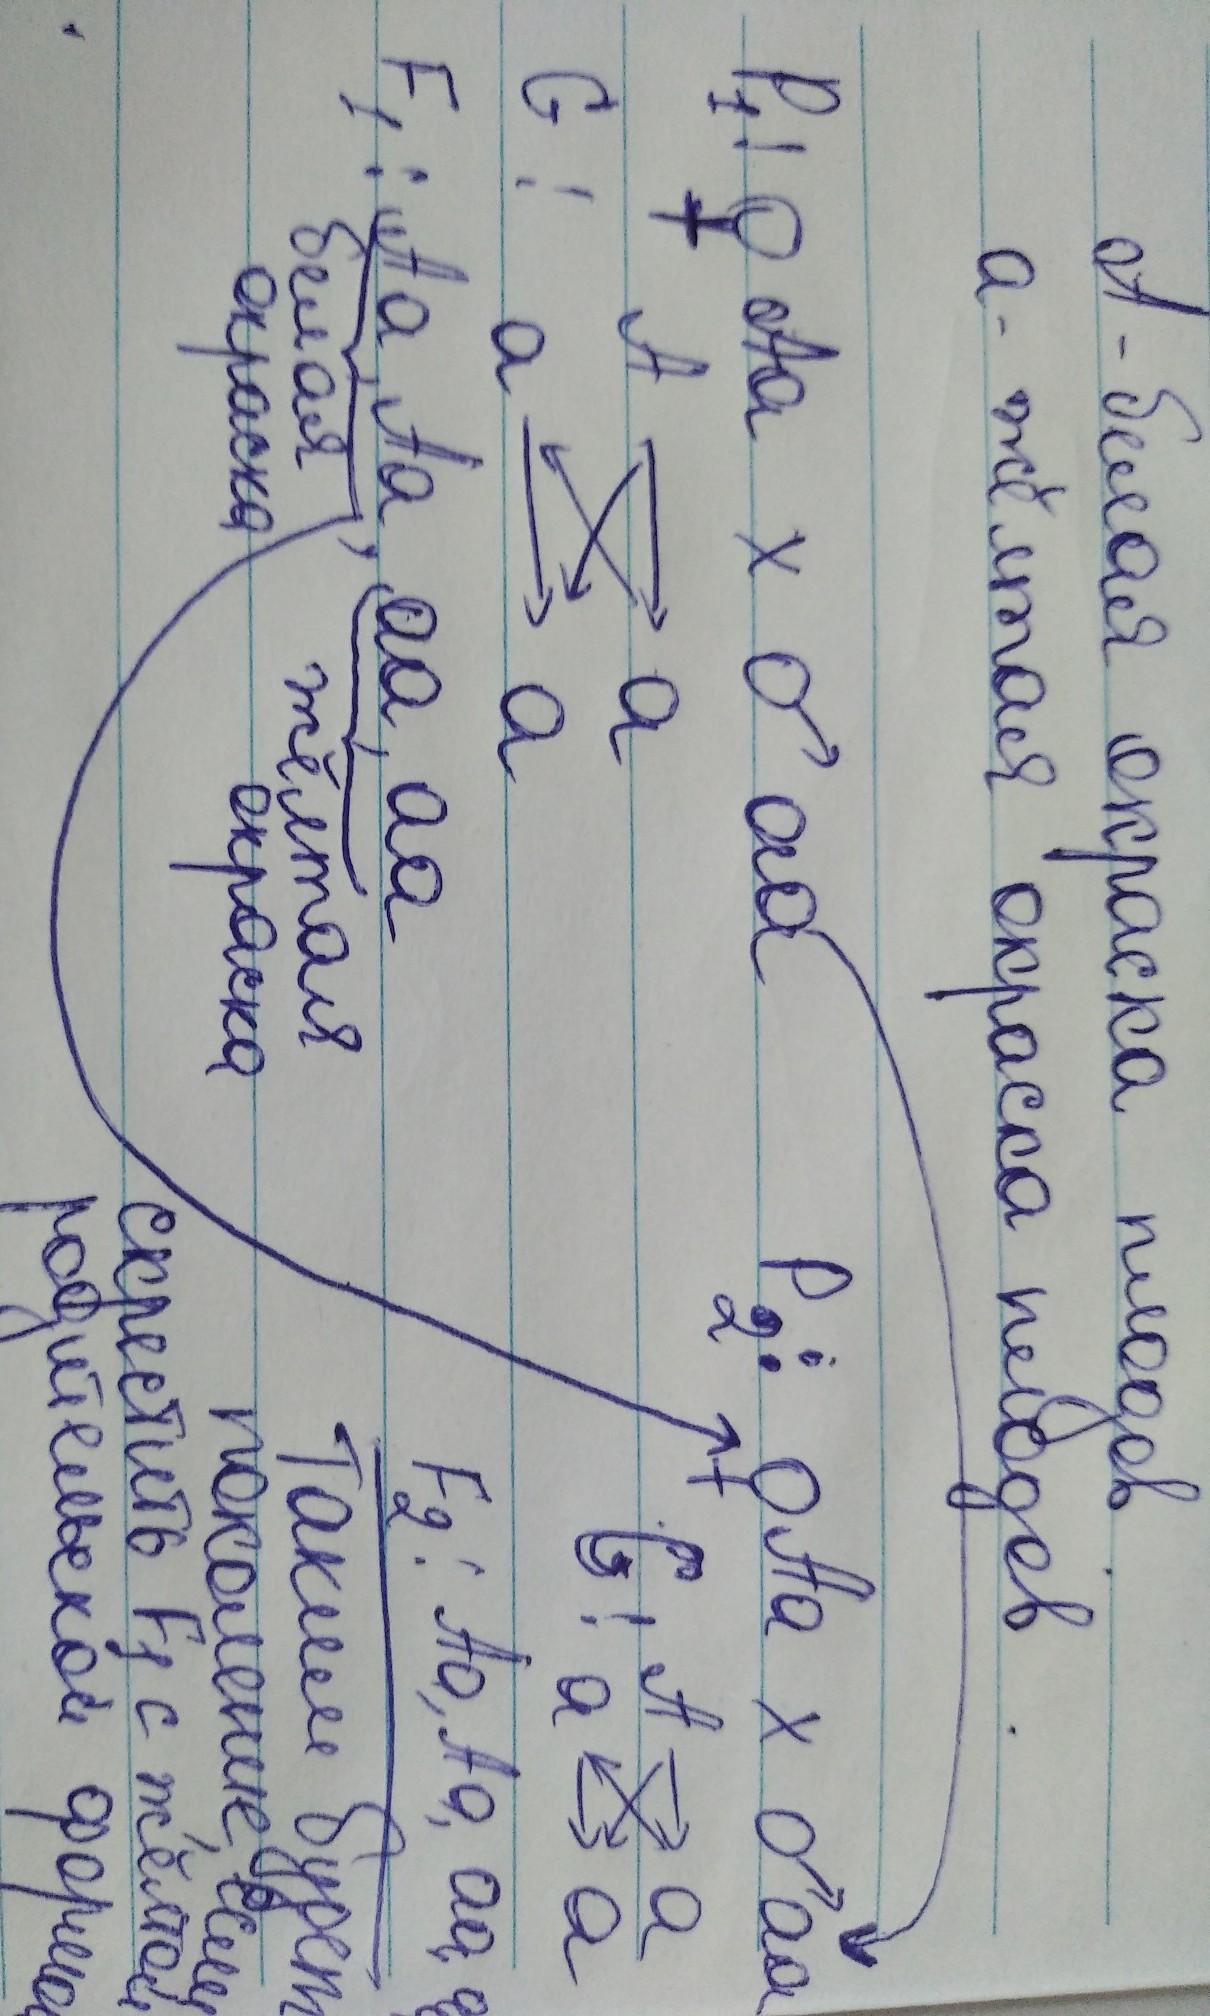 А - белая окраска плодов
а - жёлтая окраска плодов.
P1: ♀ Аа х ♂ аа
G: А а
а а
F1: Аа, Аа, аа, аа
белая окраска
жёлтая окраска
P2: ♀ Аа х ♂ аа
G: А а
а а
F2: Аа, Аа, аа, а
Таким будет
поколение, если
скрестить F1 с жёлтой
родительской формой